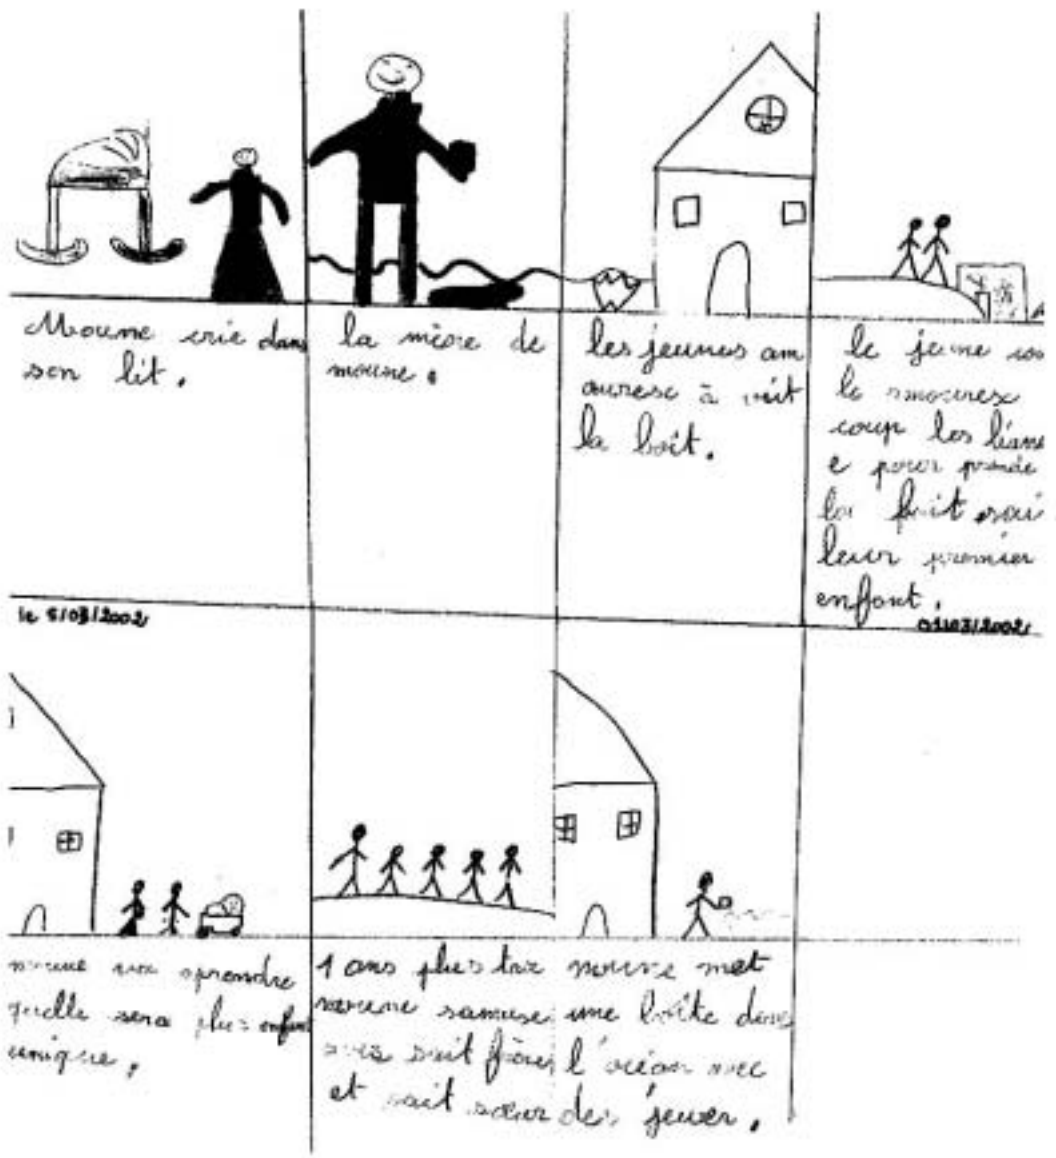 Moune crie dans
son lit.
la mère de
moune.
les jeunes am
ouresc à voit
la boît.
le jeune
le
coup les liane
e pour prende
la boit
leur premier
enffant.
le 5/03/2002
01/03/2002
moune va aprendre
quelle sera plus enfant
unique.
1 ans plus tar
moune samuse
avec sait frère
et sait sœur
moune met
une boîte dans
l'océan avec
des jeuer.